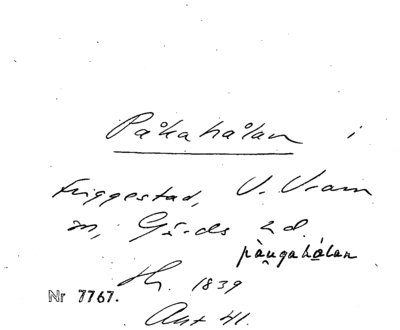 Påkahålan i
Friggestad, V. Vram
sn, Gärds hd.
pàu̯gahǻlan
Hr. 1839
Nr 7767.
Akt 41.